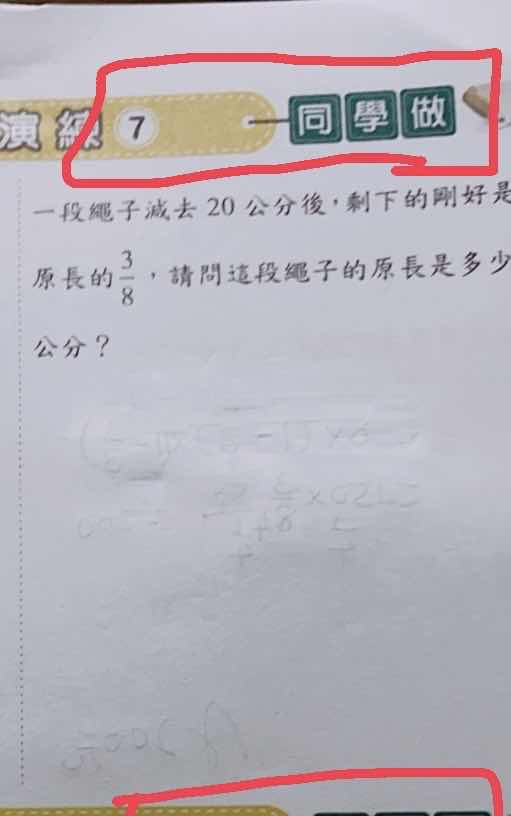 演練 7 同學做
一段繩子減去 20 公分後，剩下的剛好是
原長的 3/8，請問這段繩子的原長是多少
公分？